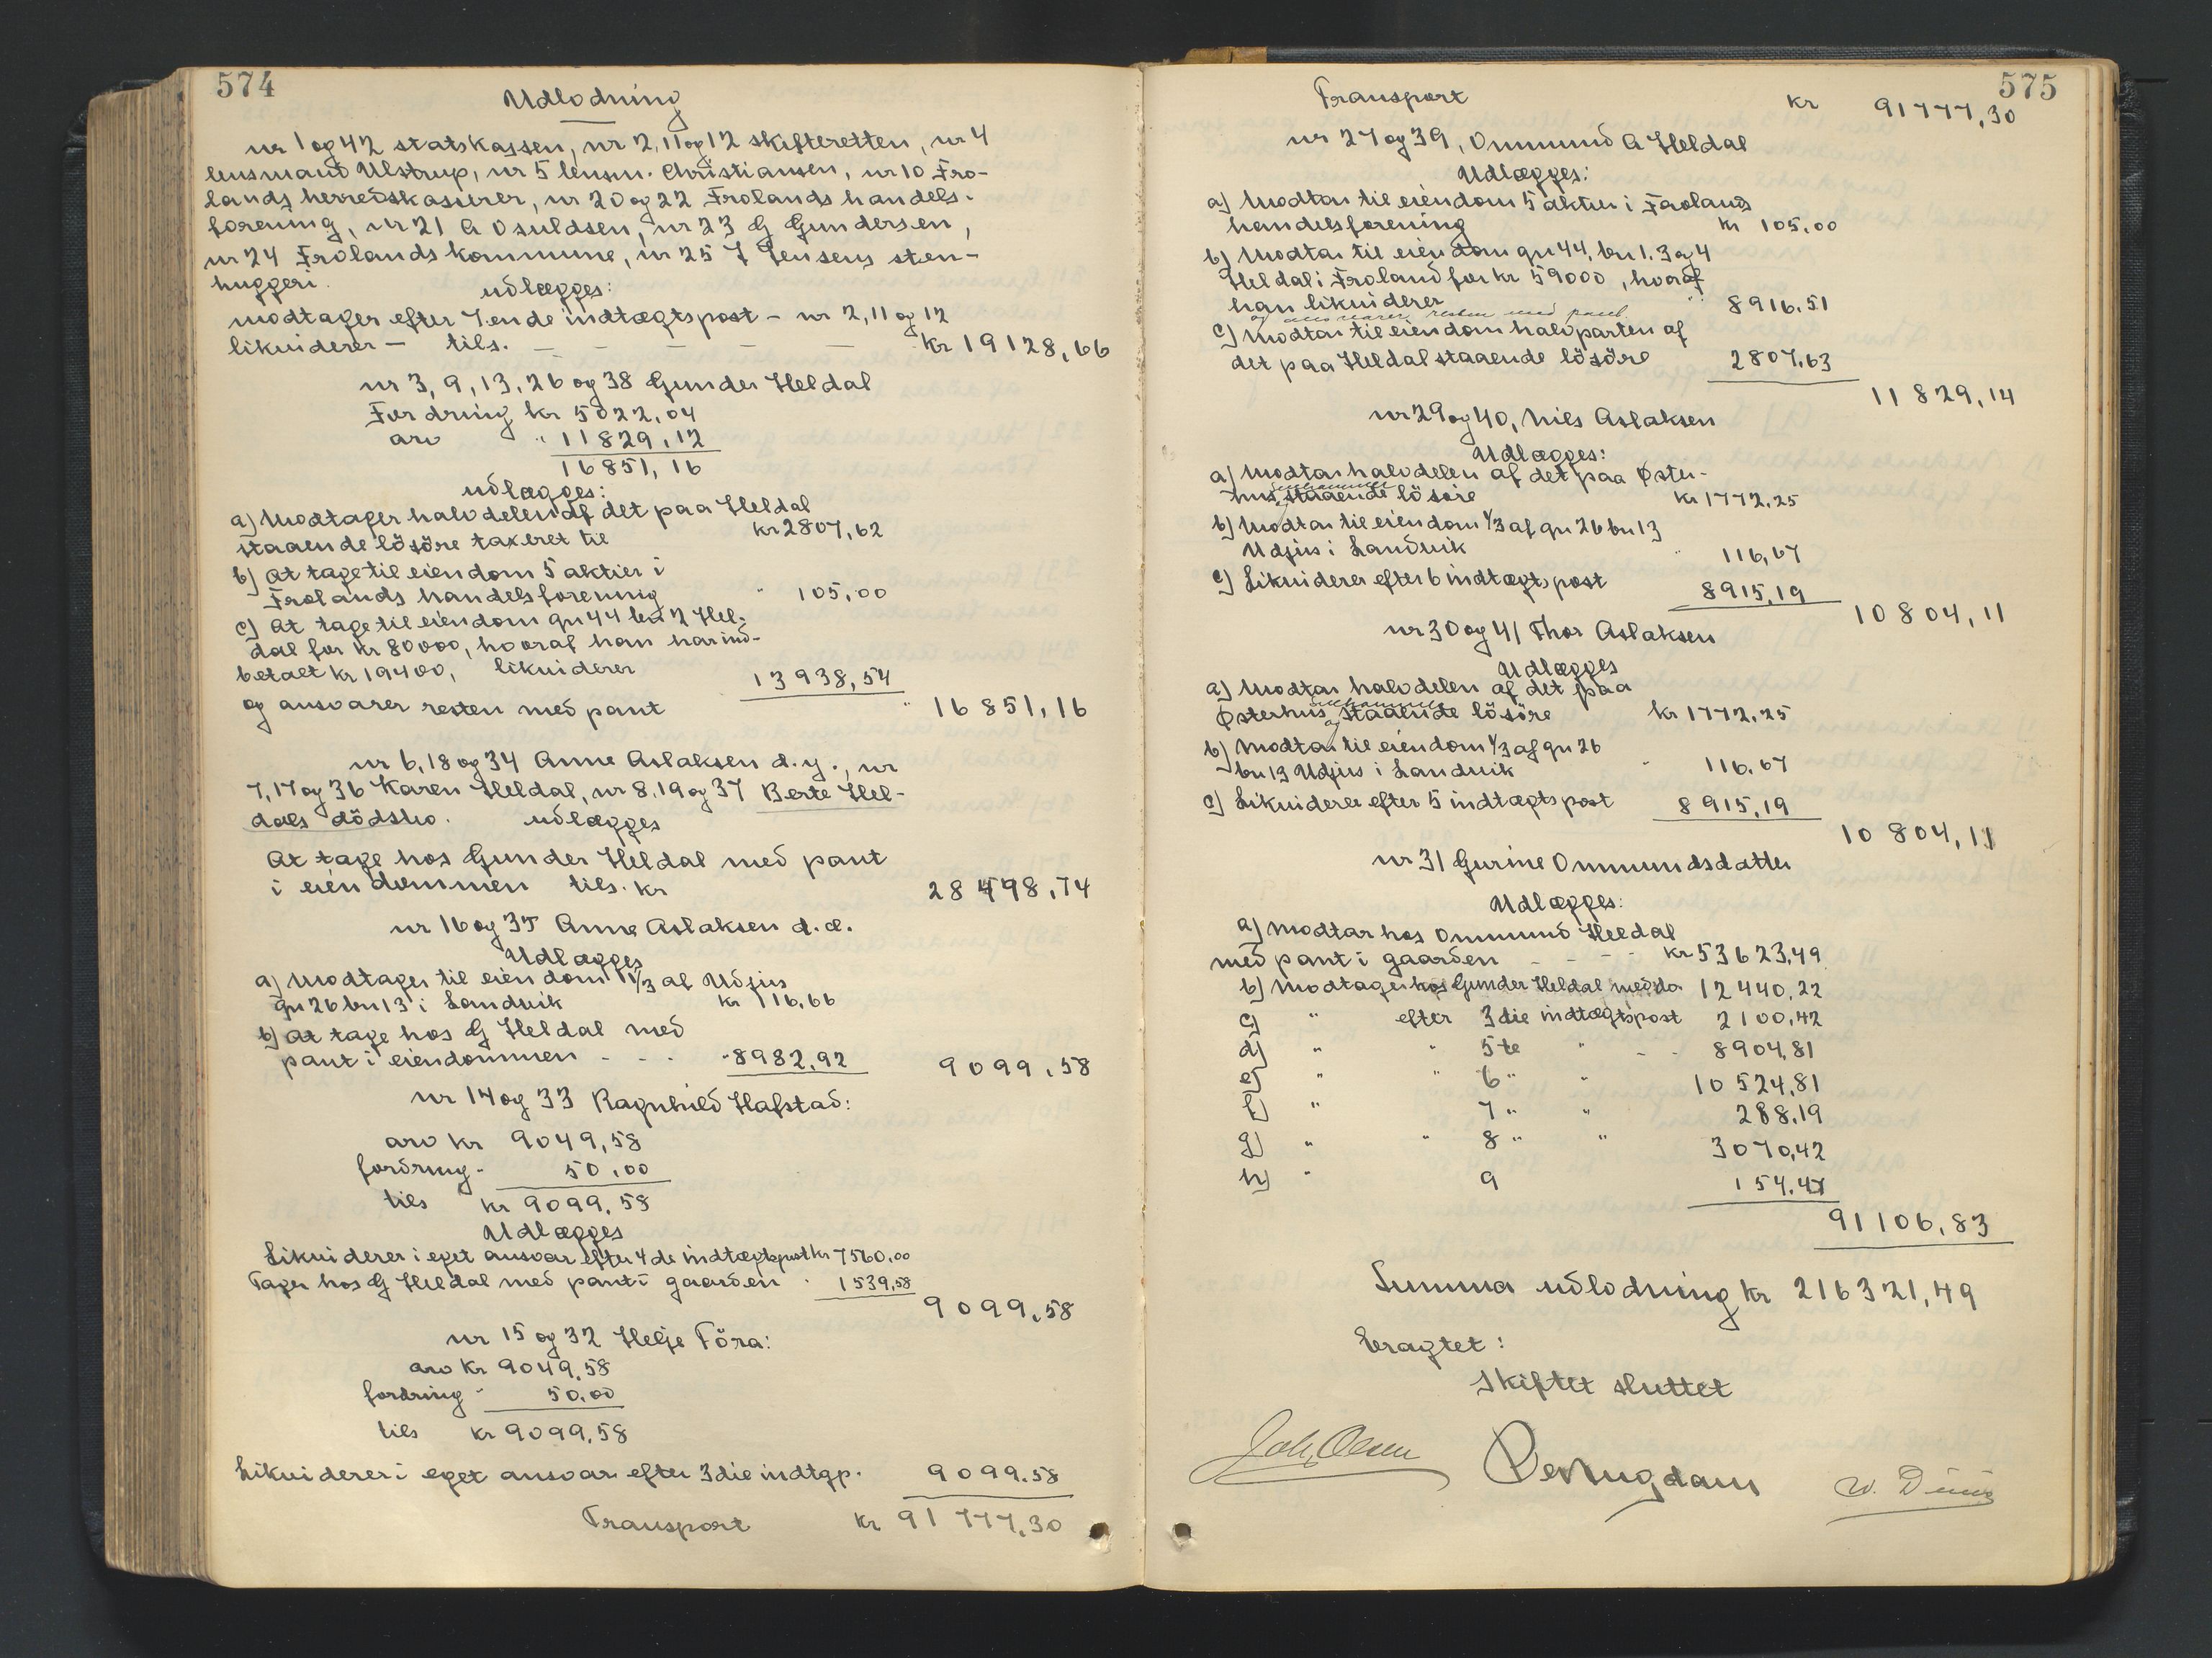 574
Udlodning
nr 1 og 42 statskassen, nr 2, 11 og 12 skifteretten, nr 4
lensmand Ulstrup, nr 5 lensm. Christiansen, nr 10 Fro-
lands herredskasserer, nr 20 og 22 Frolands handels-
forening, nr 21 A Osuldsen, nr 23 G Gundersen,
nr 24 Frolands kommune, nr 25 J Jensens sten-
huggeri.
udlægges:
modtager efter 7ende indtægtspost - nr 2, 11 og 12
likviderer - tils. — — — — — kr 19128,66
nr 3, 9, 13, 26 og 38 Gunder Heldal
Fordring kr 5022,04
arv " 11829,12
16851,16
udlægges:
a) Modtager halvdelen af det paa Heldal
staaende lösöre taxeret til kr 2807,62
b) At tage til eiendom 5 aktier i
Frolands handelsforening " 105,00
c) At tage til eiendom gn 44 bn 2 Hel-
dal for kr 80000, hvoraf han har ind-
betalt kr 19400, likviderer 13938,54
og ansvarer resten med pant " 16851,16
nr 6, 18 og 34 Anne Aslaksen d.y., nr
7, 17 og 36 Karen Heldal, nr 8, 19 og 37 Berte Hel-
dals dödsbo. udlægges
At tage hos Gunder Heldal med pant
i eiendommen tils. kr 28498,74
nr 16 og 35 Anne Aslaksen d.æ.
Udlægges
a) Modtager til eiendom 1/3 af Udjus
gn 26 bn 13 i Landvik kr 116,66
b) At tage hos G Heldal med
pant i eiendommen - - - " 8982,92 9099,58
nr 14 og 33 Ragnhild Hafstad:
arv kr 9049,58
fordring - 50,00
tils kr 9099,58
Udlægges
Likviderer i eget ansvar efter 4de indtægtspost kr 7560,00
Tager hos G Heldal med pant i gaarden . 1539,58
9099,58
nr 15 og 32 Helje Föra:
arv kr 9049,58
fordring " 50,00
tils kr 9099,58
Likviderer i eget ansvar efter 3die indtgp. 9099,58
Transport kr 91777,30
575
Transport kr 91777,30
nr 27 og 39, Ommund A Heldal
Udlægges:
a) Modtar til eiendom 5 aktier i Frolands
handelsforening kr 105,00
b) Modtar til eiendom gn 44, bn 1, 3 og 4
Heldal i Froland for kr 59000, hvoraf
han likviderer " 8916,51
og ansvarer resten med pant
c) Modtar til eiendom halvparten af
det paa Heldal staaende lösöre 2807,63
11829,14
nr 29 og 40, Nils Aslaksen
Udlægges:
a) Modtar halvdelen af det paa Øster-
hus staaende lösöre kr 1772,25
b) Modtar til eiendom 1/3 af gn 26 bn 13
Udjus i Landvik " 116,67
c) Likviderer efter 6 indtægtspost 8915,19
10804,11
nr 30 og 41 Thor Aslaksen
Udlægges
a) Modtar halvdelen af det paa
Østerhus og staaende lösöre kr 1772,25
b) Modtar til eiendom 1/3 af gn 26
bn 13 Udjus i Landvik " 116,67
c) Likviderer efter 5 indtægtspost 8915,19
10804,11
nr 31 Gurine Ommundsdatter
Udlægges:
a) modtar hos Ommund Heldal
med pant i gaarden - - - - kr 53623,49
b) Modtager hos Gunder Heldal med do 12440,22
c) " efter 3die indtægtspost 2100,42
d) " " 5te " - - 8904,81
e) " " 6 " " 10524,81
f) " 7 " " 288,19
g) " " 8 " " 3070,42
h) " 9 154,47
91106,83
Summa udlodning kr 216321,49
Eragtet:
Skiftet sluttet
Joh. Olsen